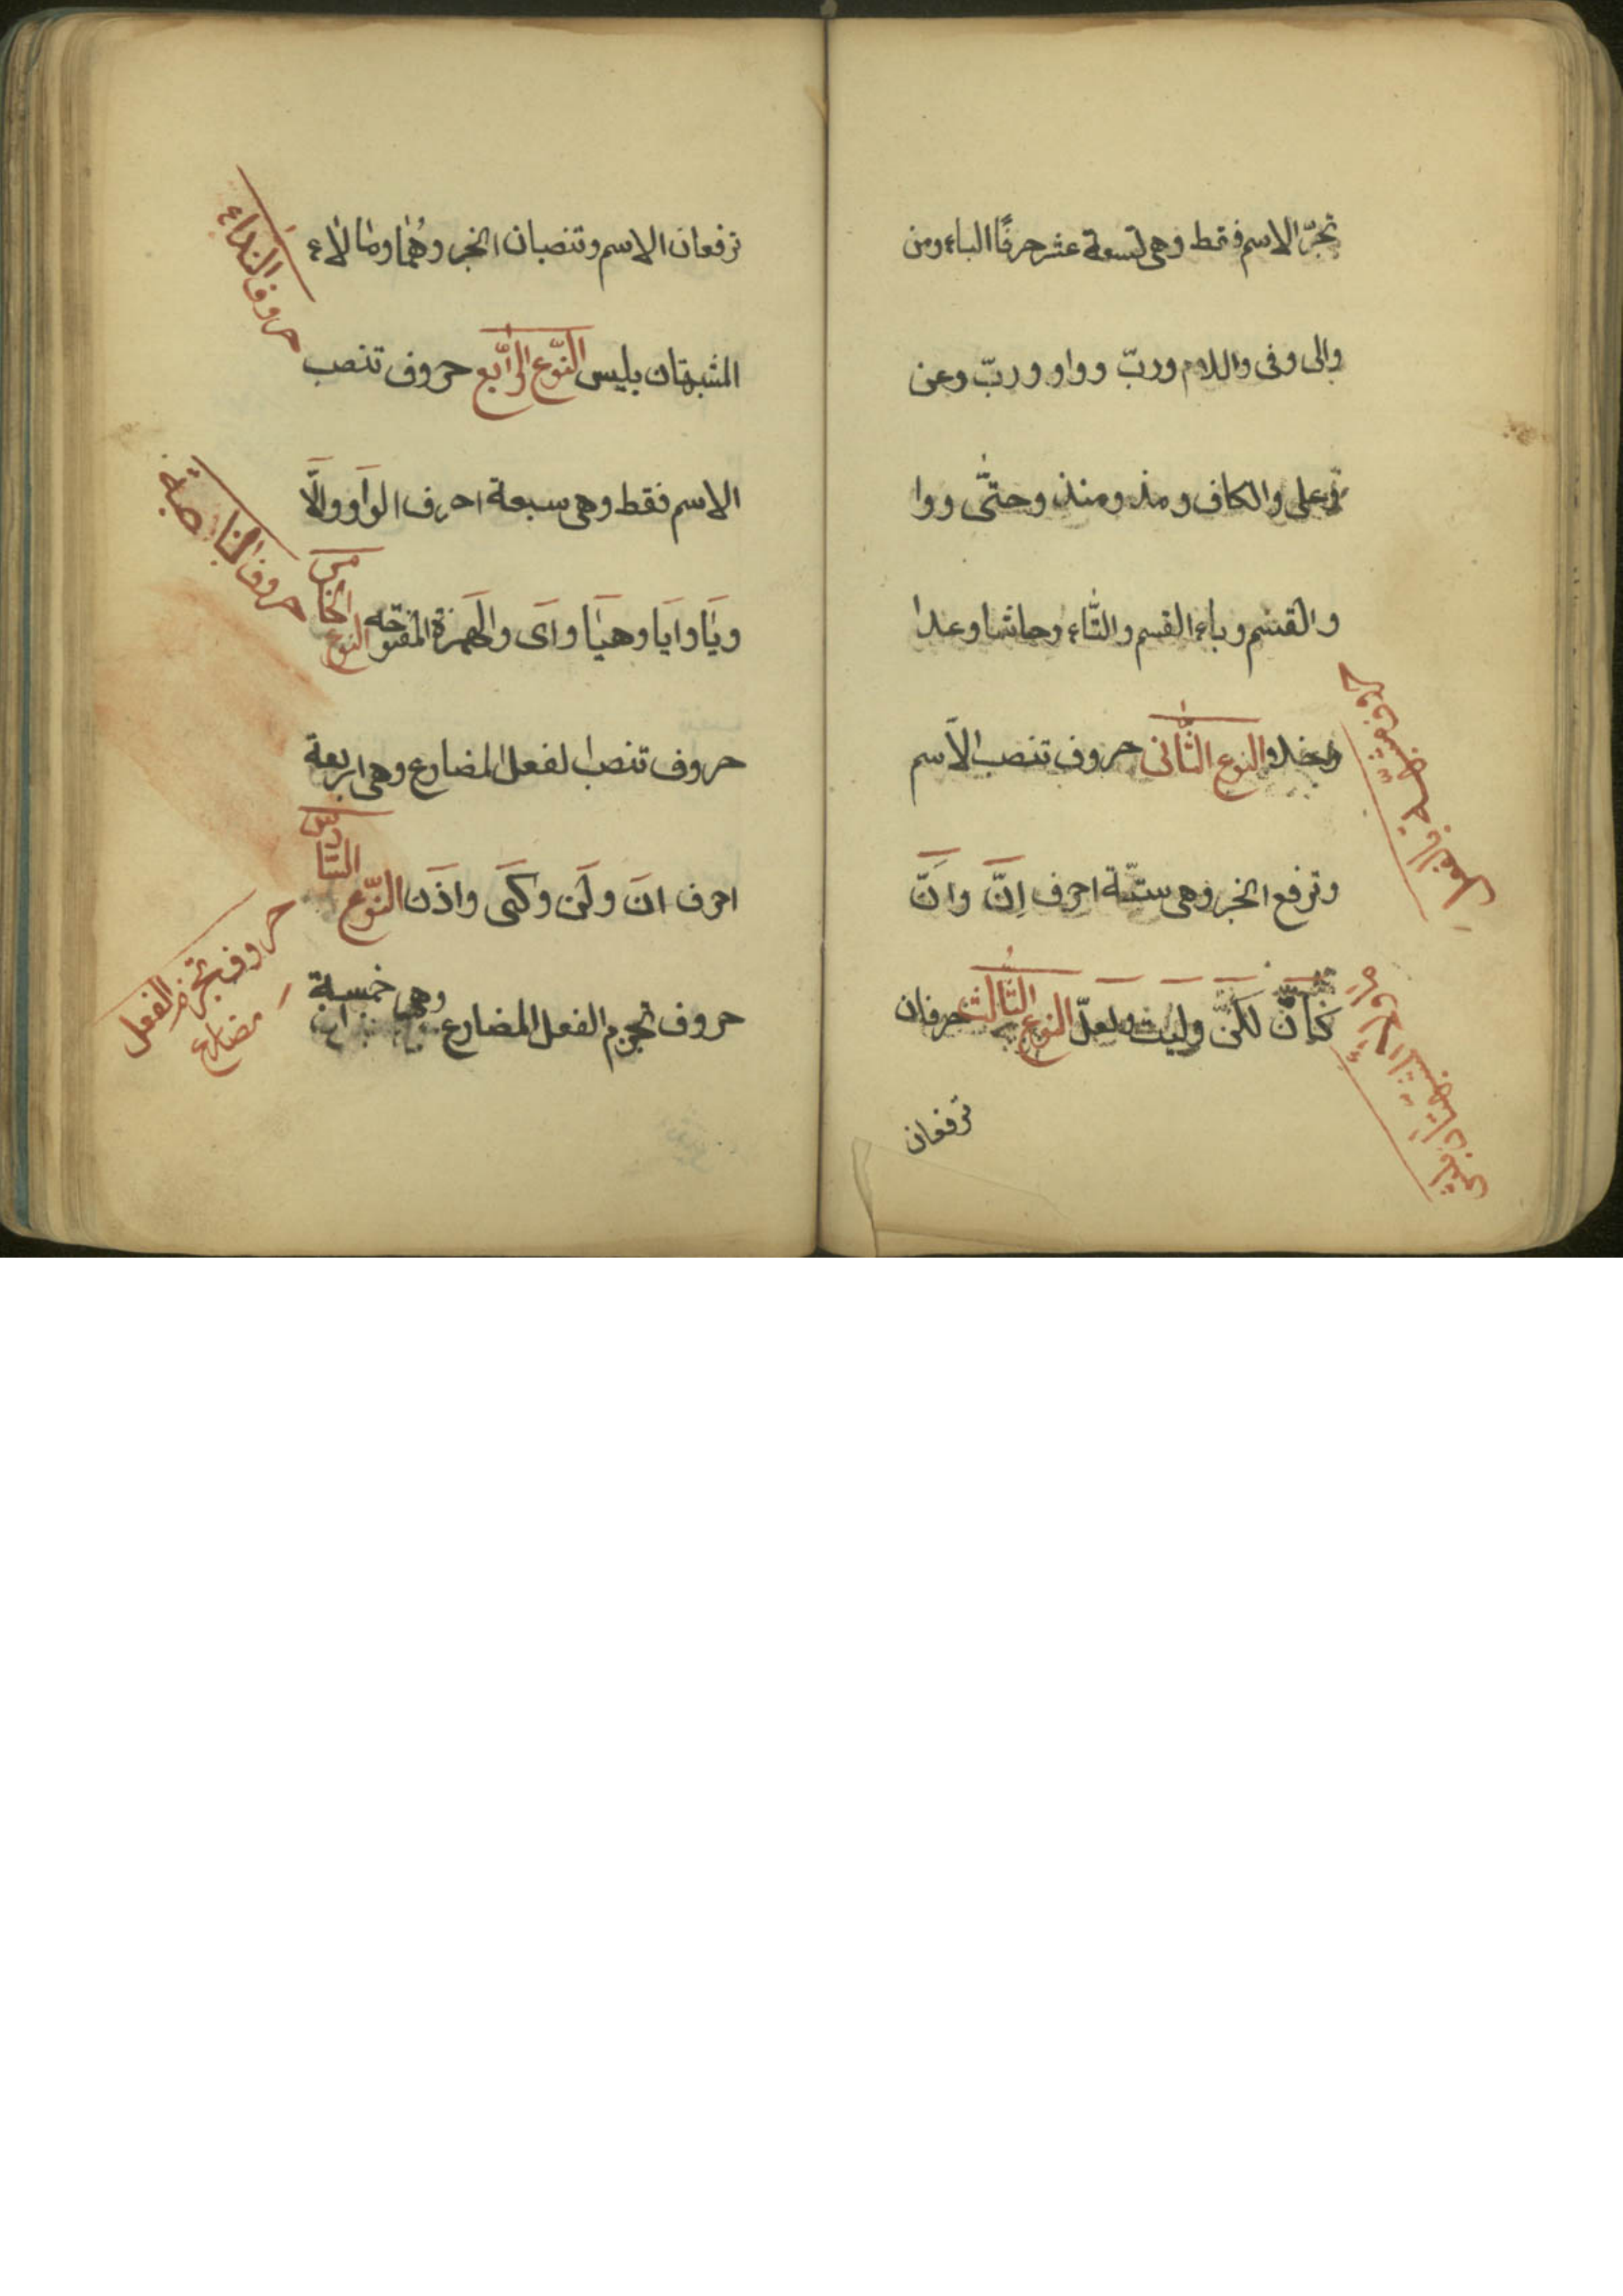 تجرّ الاسم فقط وهى تسعة عشر حرفًا الباء ومن
والى وفى واللام وربّ وواو وربّ وعن
وعلى والكاف ومذ ومنذ وحتّى ووا
والقسم وباء القسم والتّاء وحاشا وعدا
وخلا والنوع الثّانى حروف تنصب الاسم
وترفع الخبر وهى ستّة احرف اِنَّ واَنَّ
كَأنَّ لَكنَّ ولَيتَ ولعلّ النوع الثّالث حرفان
ترفعان
حروف مشبّهة بالفعل
ترفعان الاسم وتنصبان الخبر وهُما وما لاء
المشبهتان بليس النّوع الرّابع حروف تنصب
الاسم فقط وهى سبعة احرف الوَاو والَّا
ويَا واَيا وهيَا واَى والهَمزة المفتوحه النوع الخامس
حروف تنصب الفعل المضارع وهى اربعة
احرف انَ ولَن وكَى واذَن النّوع السّادس
حروف تجزم الفعل المضارع وهى خمسة
حروف النداء
حروف الناصبة
حروف تجزم الفعل
مضارع